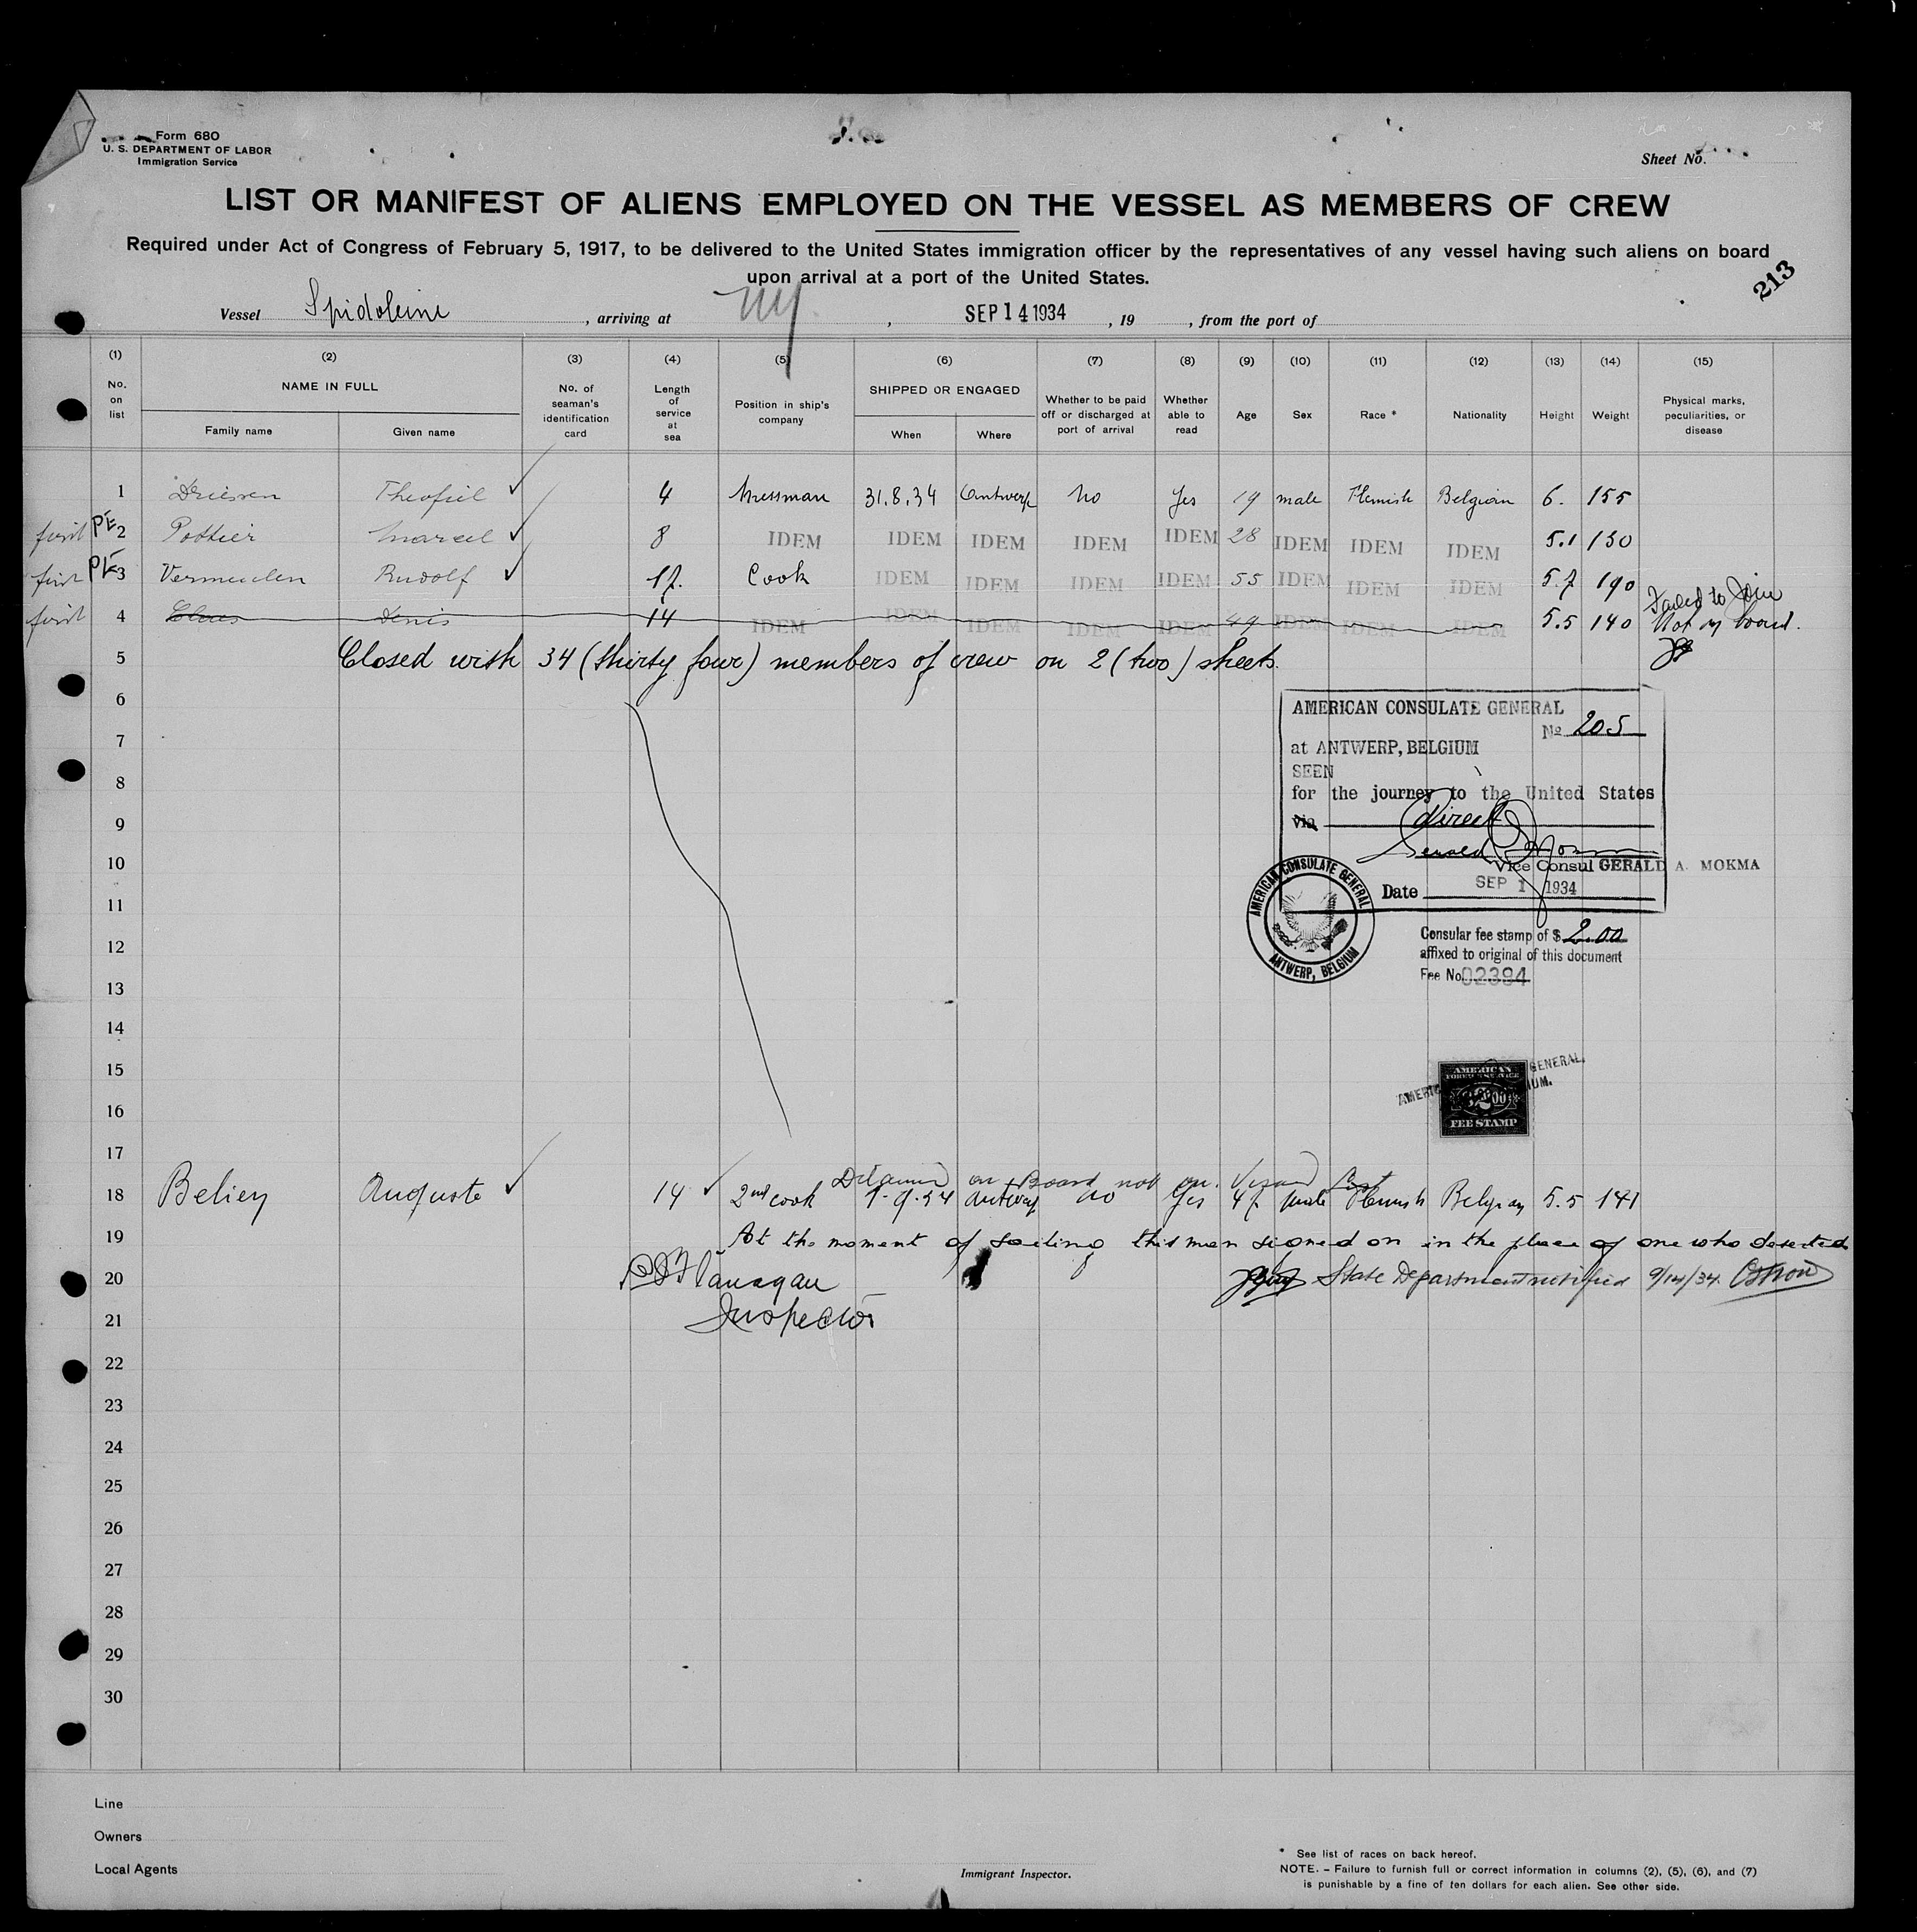 Form 680
U. S. DEPARTMENT OF LABOR
Immigration Service
Sheet No.
LIST OR MANIFEST OF ALIENS EMPLOYED ON THE VESSEL AS MEMBERS OF CREW
Required under Act of Congress of February 5, 1917, to be delivered to the United States immigration officer by the representatives of any vessel having such aliens on board
upon arrival at a port of the United States.
213
Vessel Spidoleine , arriving at NY , SEP 14 1934 , 19 , from the port of
(1) (2) (3) (4) (5) (6) (7) (8) (9) (10) (11) (12) (13) (14) (15)
No. on list NAME IN FULL Family name Given name No. of seaman's identification card Length of service at sea Position in ship's company SHIPPED OR ENGAGED When Where Whether to be paid off or discharged at port of arrival Whether able to read Age Sex Race * Nationality Height Weight Physical marks, peculiarities, or disease
1 Driesen Theofiel ✓ 4 Messman 31.8.34 Antwerp No Yes 19 male Flemish Belgian 6. 155
first PE 2 Pottier Marcel ✓ 8 IDEM IDEM IDEM IDEM IDEM 28 IDEM IDEM IDEM 5.1 130
first PE 3 Vermeulen Rudolf ✓ 17. Cook IDEM IDEM IDEM IDEM 55 IDEM IDEM IDEM 5.7 190
first 4 Claes Denis 14 IDEM IDEM IDEM IDEM IDEM 49 IDEM IDEM IDEM 5.5 140 Failed to Join Not on board.
5 Closed with 34 (thirty four) members of crew on 2 (two) sheets.
6
AMERICAN CONSULATE GENERAL
№ 205
7
at ANTWERP, BELGIUM
SEEN
8
for the journey to the United States
9
via direct
10
Vice Consul GERALD A. MOKMA
Date SEP 1 1934
11
AMERICAN CONSULATE GENERAL ANTWERP, BELGIUM
12
Consular fee stamp of $ 2.00
affixed to original of this document
Fee No. 02394
13
14
15
AMERICAN FOREIGN SERVICE $2.00 FEE STAMP
16
17
Detained on Board not on Visaed List
18 Beliey Auguste ✓ 14 ✓ 2nd cook 1-9-34 Antwerp No Yes 47 male Flemish Belgian 5.5 141
19 At the moment of sailing this man signed on in the place of one who deserted
20 Flanagan State Department notified 9/14/34.
21 Inspector
22
23
24
25
26
27
28
29
30
Line
Owners
Local Agents
Immigrant Inspector.
* See list of races on back hereof.
NOTE. – Failure to furnish full or correct information in columns (2), (5), (6), and (7)
is punishable by a fine of ten dollars for each alien. See other side.